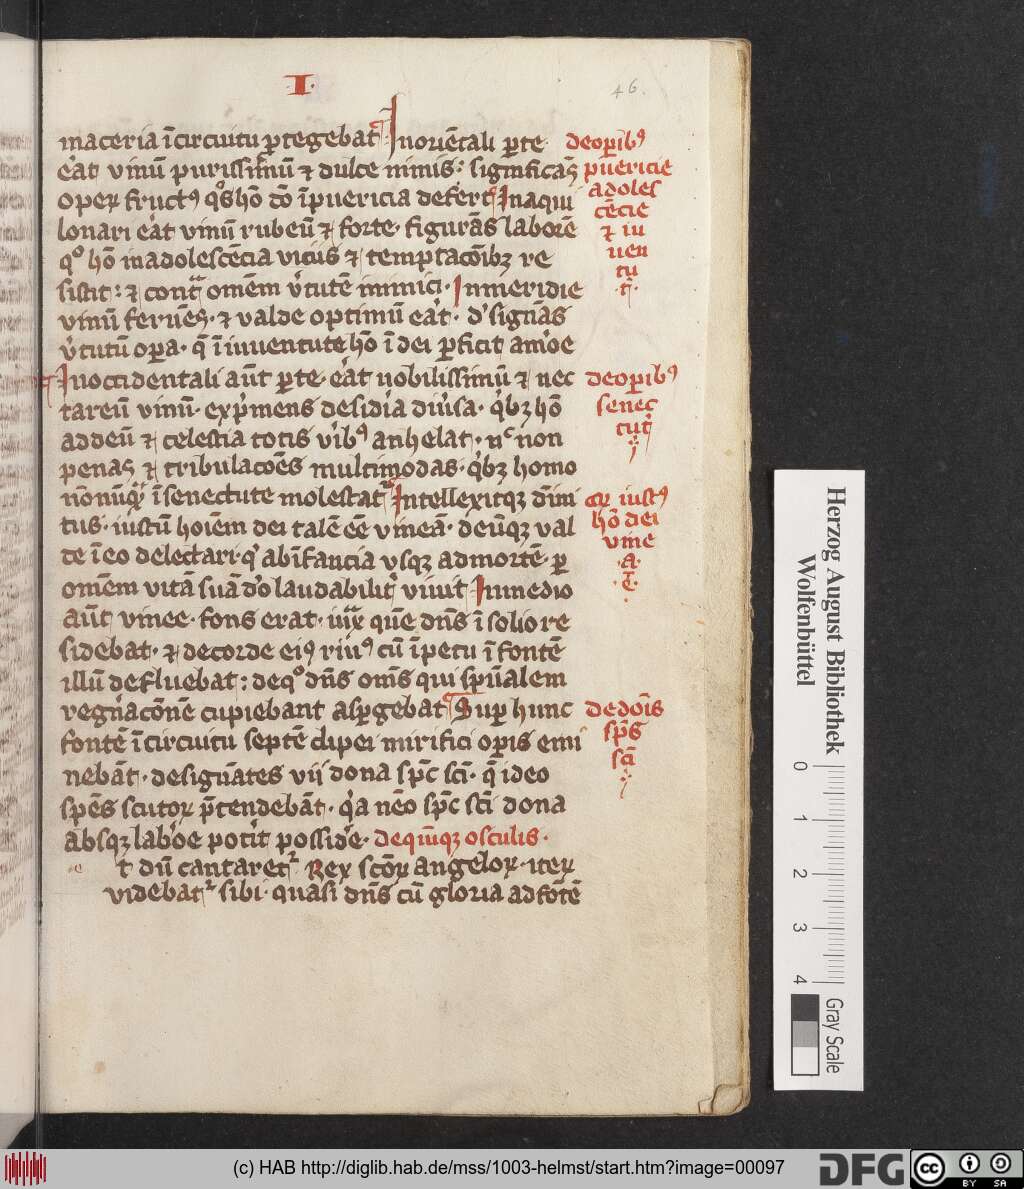 ·I·
46.
maceria īcircuitu ꝓtegebat᷑. Inoriētali ꝑte
erat vinū purissimū ⁊ dulce nimis. significās
oꝑeꝝ fructꝰ q̊s hō deo īpuericia defert. Inaqui
lonari erat vinū rubeū ⁊ forte. figurās laborē
qͦ hō inadolescēcia viciis ⁊ temptacōibꝫ re
sistit: ⁊ contᷓ omēm v̓tutē inimici. Inmeridie
vinū feruēs. ⁊ valde optimū erat. designās
v̓tutū oꝑa. q̄ ī iuuentute hō ī dei ꝑficit amore
Inoccidentali aūt ꝑte erat nobilissimū ⁊ nec
tareū vinū. exprimens desideria diuersa. quibꝫ hō
addeū ⁊ celestia totis viribꝰ anhelat. nͨ non
penas ⁊ tribulacōes multimodas. quibꝫ homo
nōnūqᷓ īsenectute molestat᷑. Intellexitqꝫ dīni
tus. iustū hoīem dei talē eē vineā. deūqꝫ val
de ī eo delectari. qͥ abīfancia vsqꝫ admortē ꝑ
omēm vitā suā deo laudabiliter viuit. Inmedio
aūt vinee. fons erat. iuxᷓ quē dn̄s ī solio re
sidebat. ⁊ decorde eiꝰ riuꝰ cū īpetu ī fontē
illū defluebat: deqͦ dn̄s om̄s qui spūalem
regn̓acōnē cupiebant aspergebat. Suꝑ hunc
fontē īcircuitu septē clipei mirifici oꝑis emi
nebāt. designātes vij dona sp̄c sc̄i. q̄ ideo
spēs scutoꝝ p̄tendebāt. quia nēo sp̄c sc̄i dona
absqꝫ labore poterit possidere. dequīqꝫ osculis.
t dū cantaret᷑. Rex scōꝝ angeloꝝ. iteꝝ
videbat᷑ sibi. quasi dn̄s cū gloria adfōtē
deoꝑibꝰ
puericie
adoles
cēcie
⁊ iu
uen
tu
t̄.
deoꝑibꝰ
senec
tut̄
qꝛ iustꝰ
hō dei
vine
·a·
·ē·
dedoīs
sp̄s
sc̄i
Herzog August Bibliothek
Wolfenbüttel
0 1 2 3 4
Gray Scale
(c) HAB http://diglib.hab.de/mss/1003-helmst/start.htm?image=00097
DFG
cc BY SA